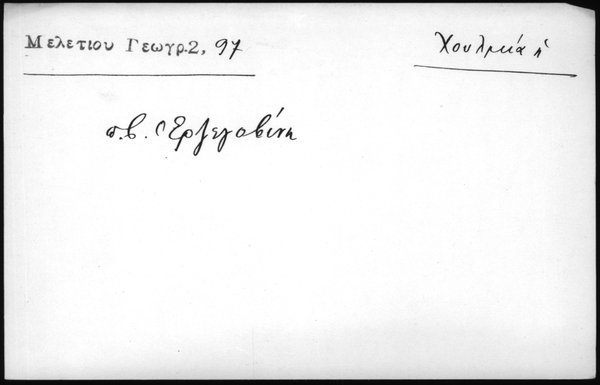 Μελετιου Γεωγρ.2, 97
Χουλμία ἡ
π.β. Ἑρζεγοβίνη